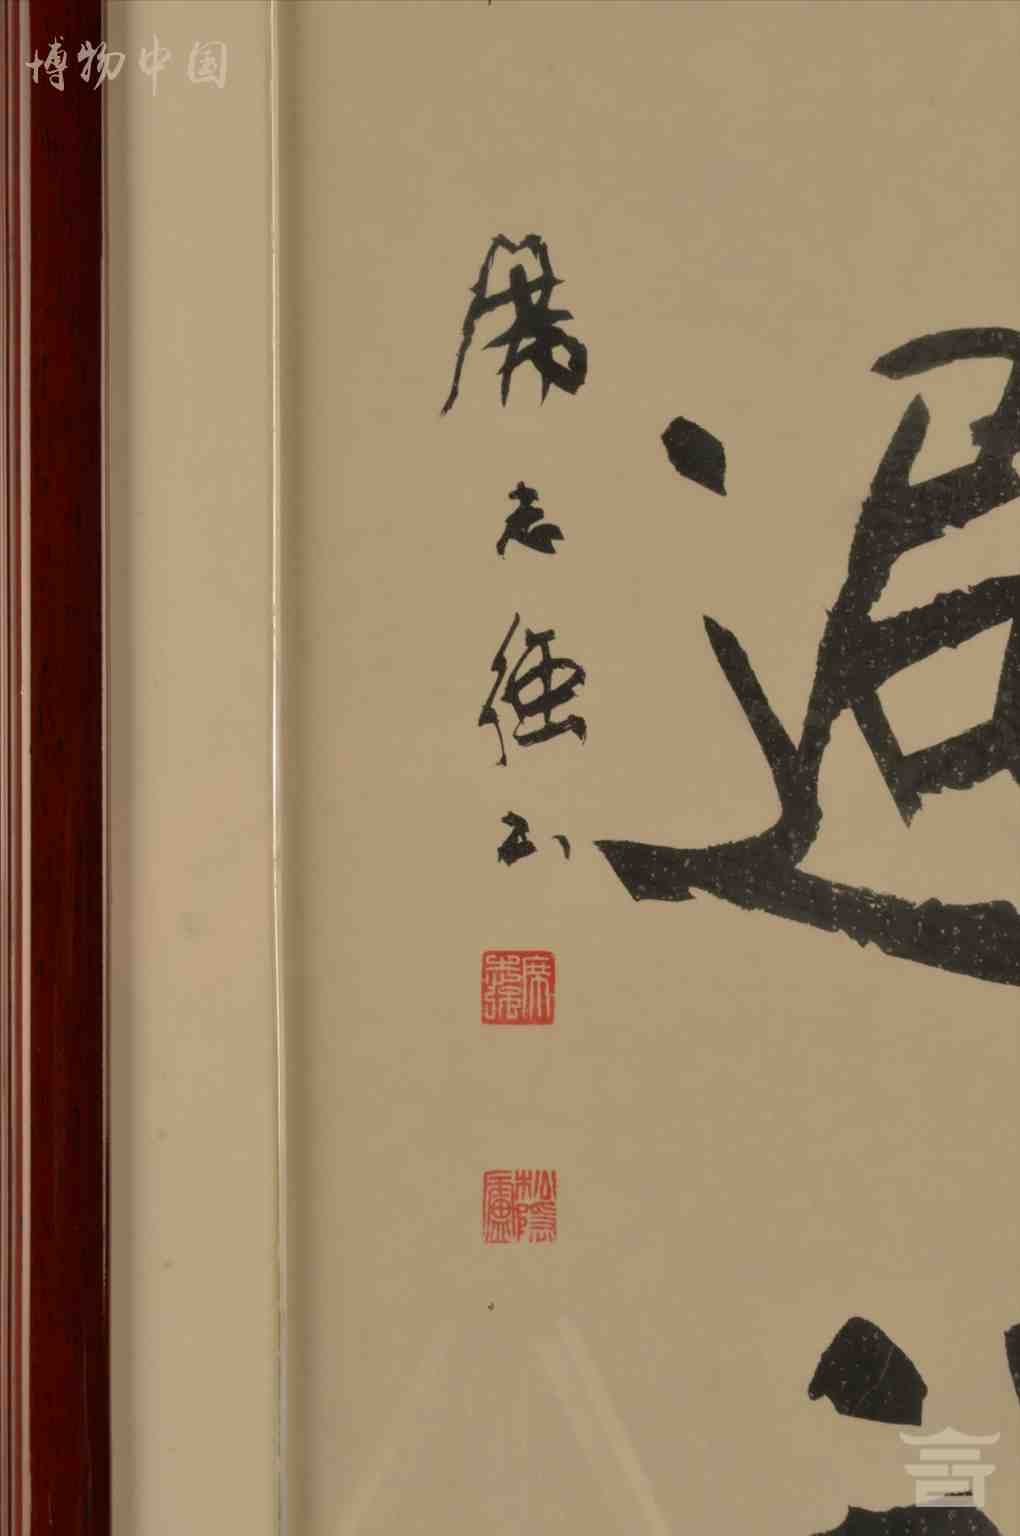 博物中国
席志强书
席志强
松隐庐